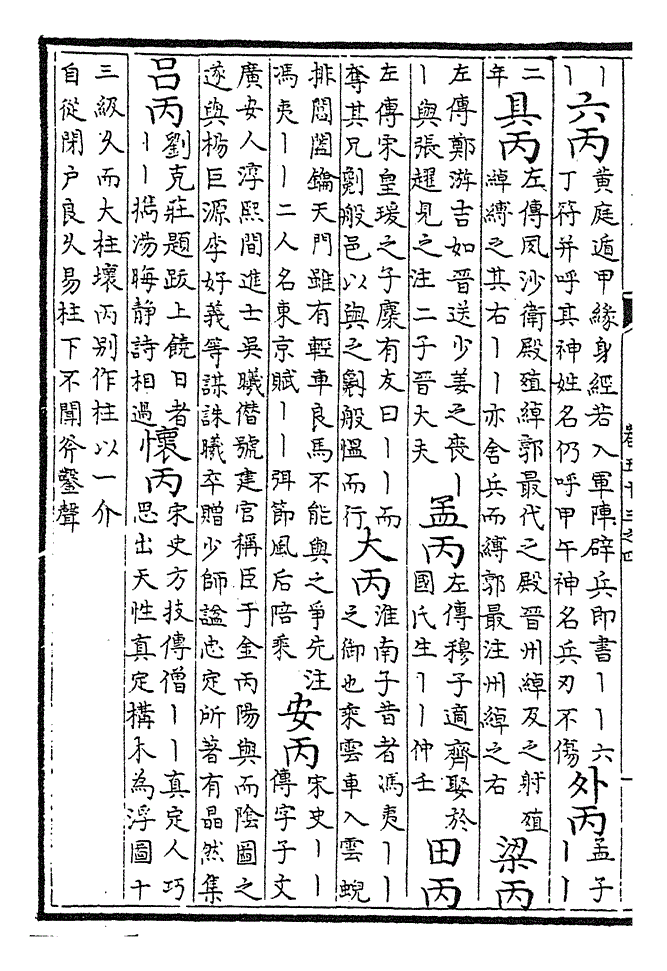 丨
丨
六丙
黄庭遁甲緣身經若入軍陣辟兵即書丨丨六
丁符并呼其神姓名仍呼甲午神名兵刃不傷
外丙
孟子
丨丨
二
年
具丙
左傳夙沙衛殿殖綽郭最代之殿晉州綽及之射殖
綽縛之其右丨丨亦舍兵而縛郭最注州綽之右
梁丙
左傳鄭游吉如晉送少姜之喪丨
丨與張趯見之注二子晉大夫
孟丙
左傳穆子適齊娶於
國氏生丨丨仲壬
田丙
左傳宋皇瑗之子麇有友曰丨丨而
奪其兄劖般邑以與之劖般愠而行
大丙
淮南子昔者馮夷丨丨
之御也乘雲車入雲蜺
排閶闔鑰天門雖有輕車良馬不能與之爭先注
馮夷丨丨二人名東京賦丨丨弭節風后陪乘
安丙
宋史丨丨
傳字子文
廣安人淳熙間進士吳曦僭號建官稱臣于金丙陽與而陰圖之
遂與楊巨源李好義等謀誅曦卒贈少師謚忠定所著有皛然集
吕丙
劉克莊題跋上饒日者
丨丨搗湯晦静詩相過
懷丙
宋史方技傳僧丨丨真定人巧
思出天性真定構木為浮圖十
三級久而大柱壞丙别作柱以一介
自從閉户良久易柱下不聞斧鑿聲